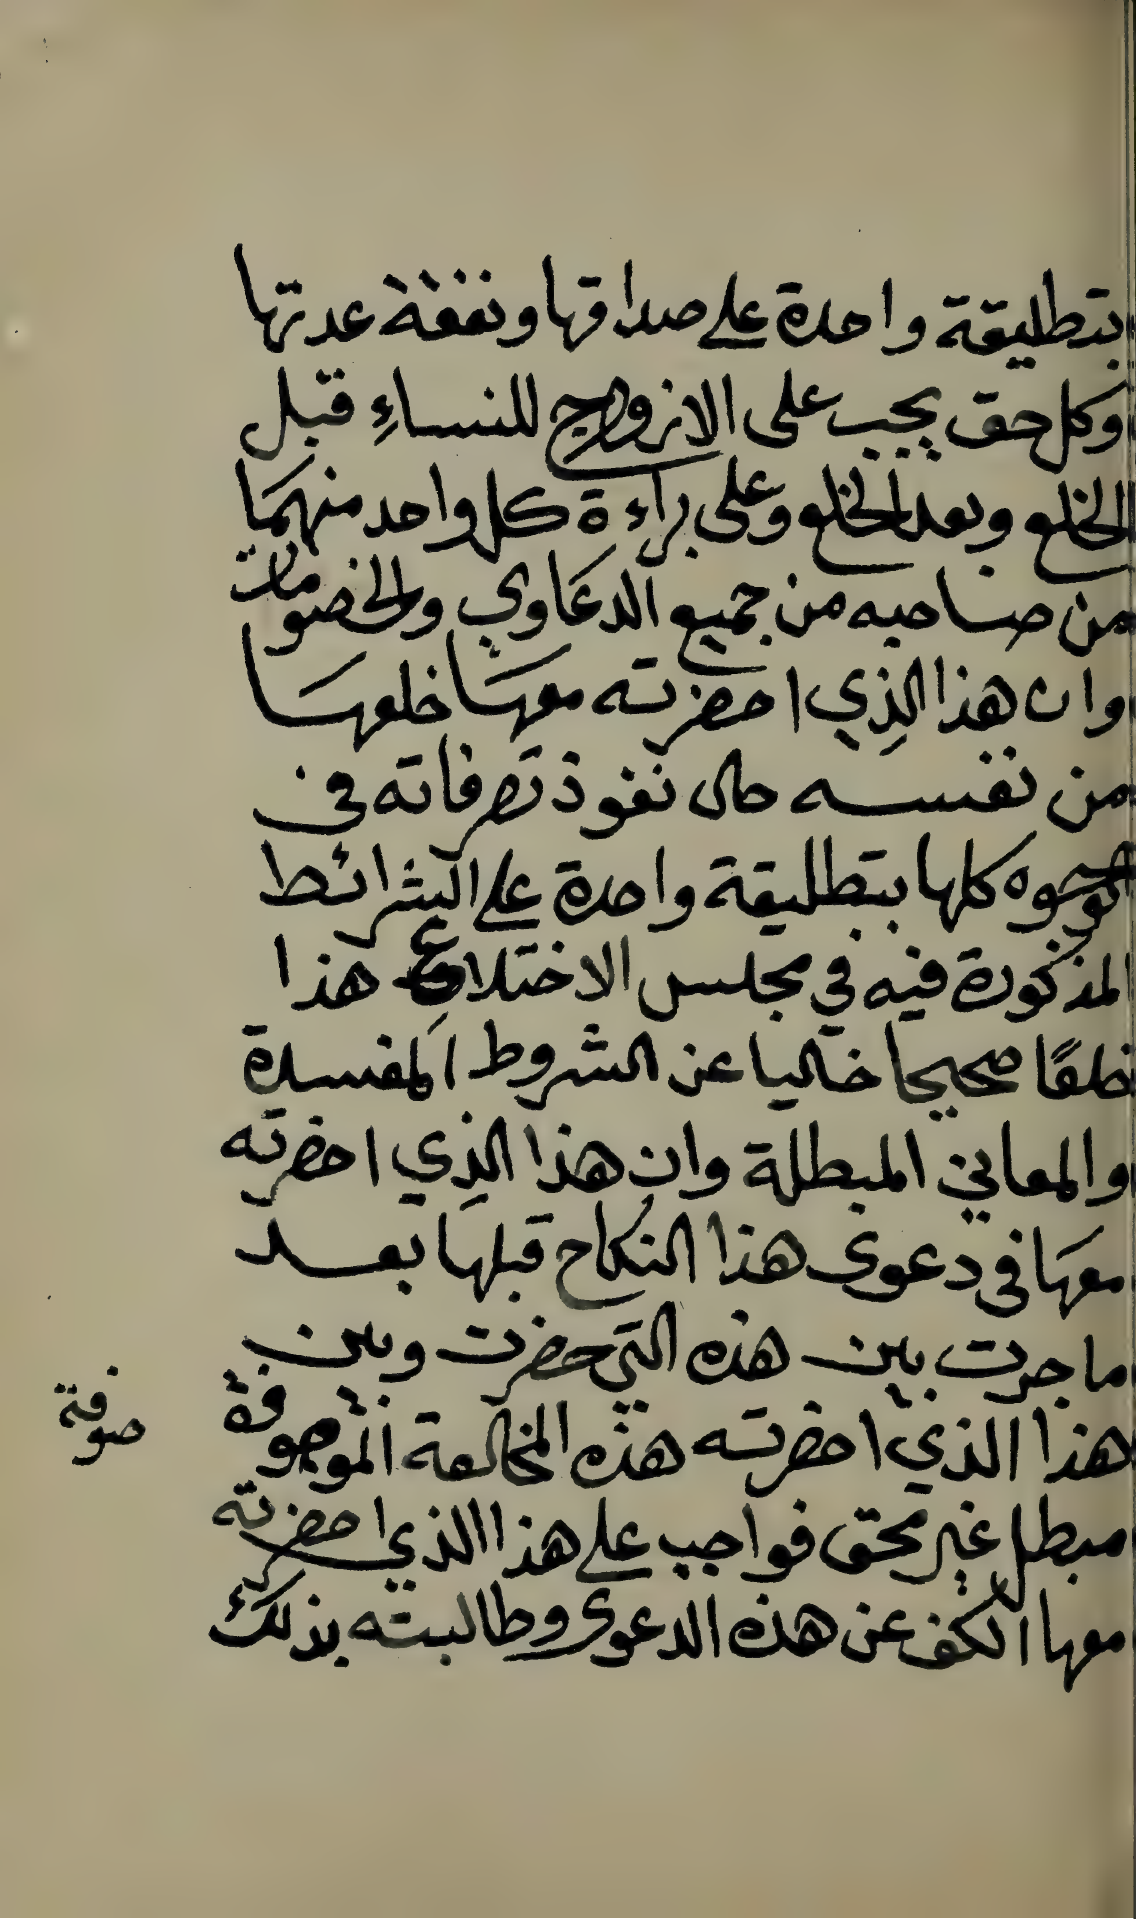 بتطليقة واحدة على صداقها ونفقة عدتها
وكل حق يجب على الازواج للنساءِ قبل
الخلع وبعد الخلع وعلى براءة كل واحد منهما
من صاحبه من جميع الدعاوي والخصومات
وان هذا الذي احضرته معها خلعها
من نفسه حال نفوذ تصرفاته في
الوجوه كلها بتطليقة واحدة على الشرائط
المذكورة فيه في مجلس الاختلاع هذا
خلعًا صحيحا خاليا عن الشروط المفسدة
والمعاني المبطلة وان هذا الذي احضرته
معها في دعوى هذا النكاح قبلها بعد
ما جرت بين هذه التي حضرت وبين
هذا الذي احضرته هذه المخالعة الموصوفة
صوفة
مبطل غير محق فواجب على هذا الذي احضرته
معها الكف عن هذه الدعوى وطالبته بذلك